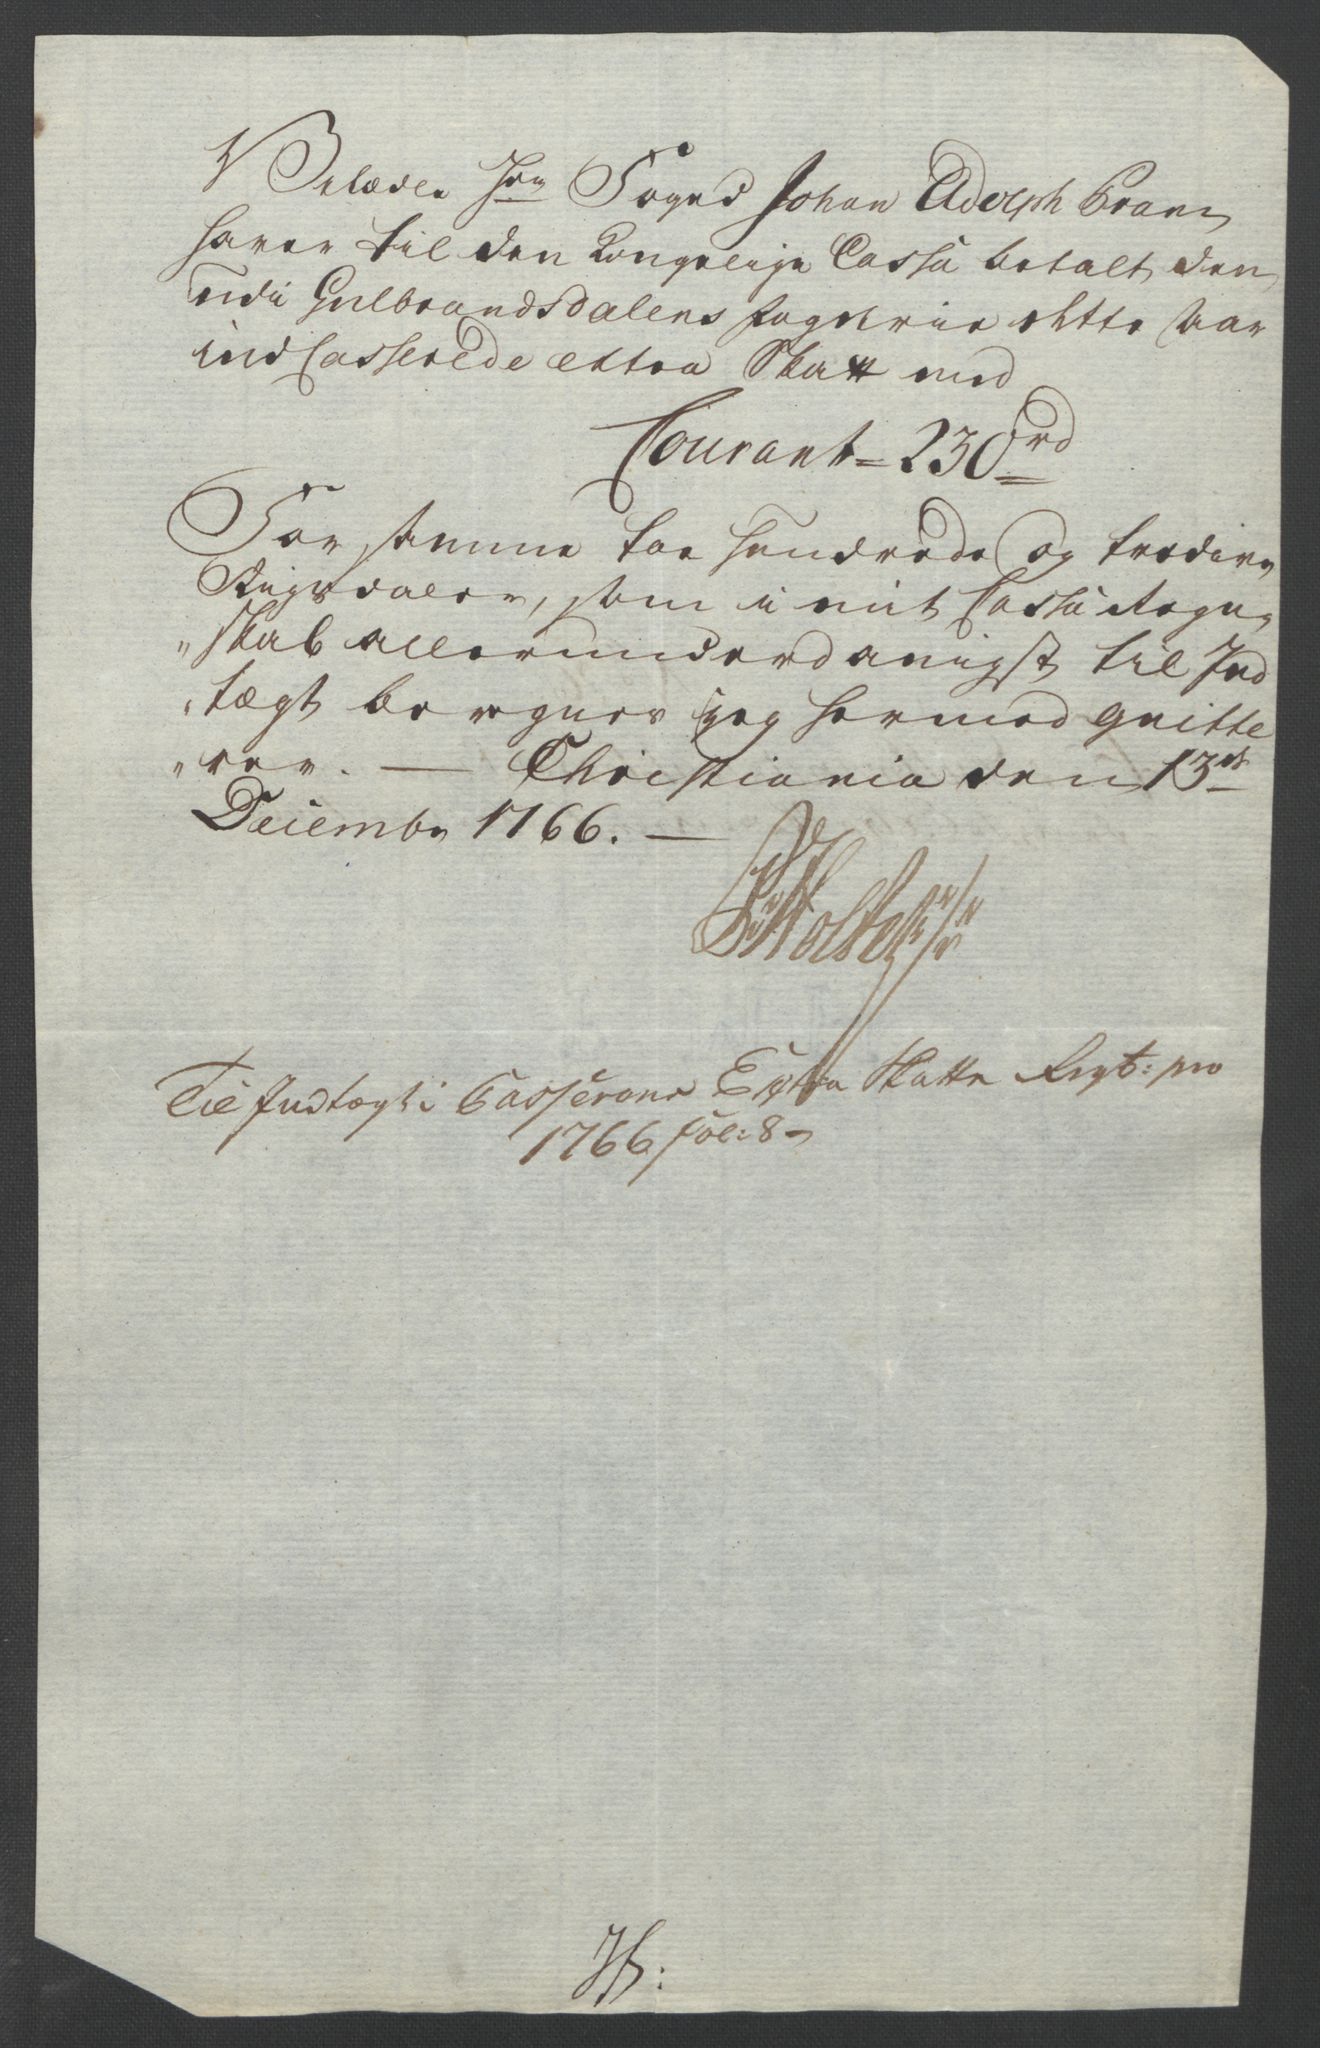 Velædle Hr Foged Johan Adolph Pram
haver til den Kongelige Cassa betalt, den
udi Gulbrandsdalens Fogderie dette Aar
indCasserede extra Skatt med
Courant = 230 rd
For samme toe hundrede og tredive
Rigsdaler, som i mit Cassa Regn-
"skab allerunderdanigst til Ind
"tægt beregnes jeg hermed qvitte
"rer. — Christiania den 13de
Decembr 1766. —
Til Indtægt i Casserens Extra Skatte Regb: pro
1766 fol: 8